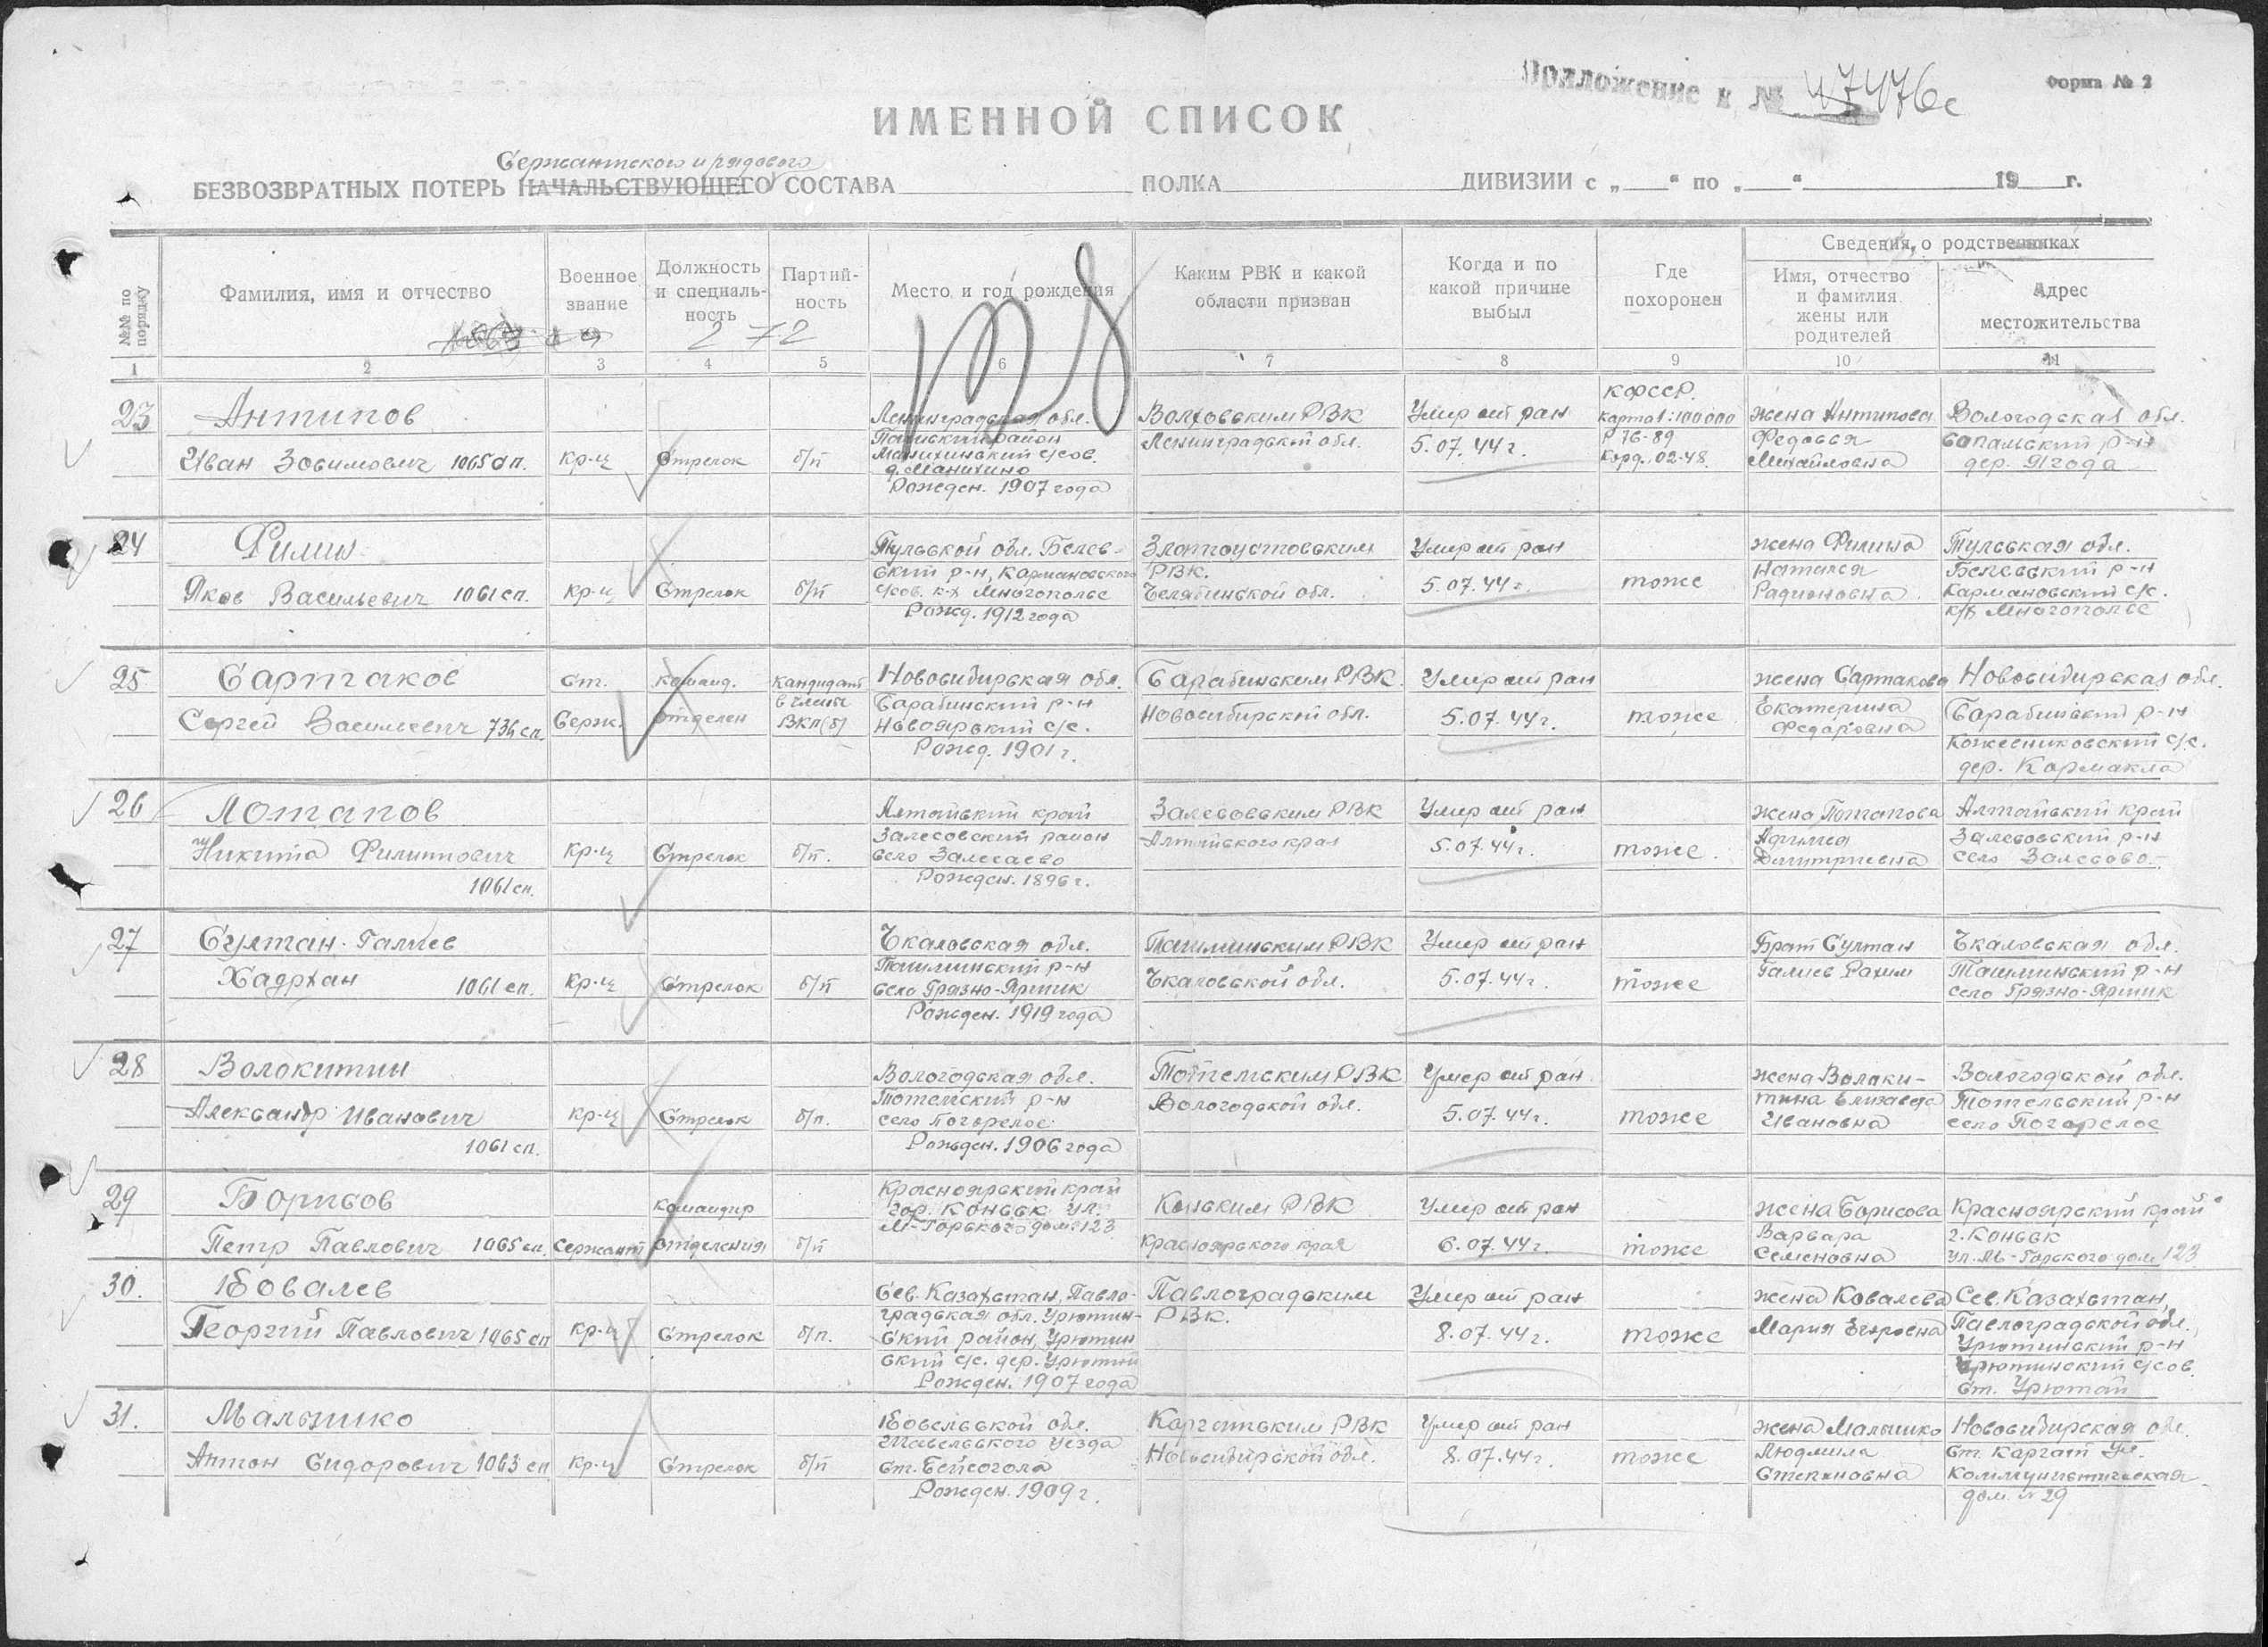 Приложение к № 47476с
Форма № 2
ИМЕННОЙ СПИСОК
Сержантского и рядового
БЕЗВОЗВРАТНЫХ ПОТЕРЬ НАЧАЛЬСТВУЮЩЕГО СОСТАВА ПОЛКА ДИВИЗИИ с „ “ по „ “ 19 г.
№№ по порядку
Фамилия, имя и отчество
Военное звание
Должность и специаль-ность
Партий-ность
Место и год рождения
Каким РВК и какой области призван
Когда и по какой причине выбыл
Где похоронен
Сведения о родственниках
Имя, отчество и фамилия жены или родителей
Адрес местожительства
272
1 2 3 4 5 6 7 8 9 10 11
23 Антипов
Иван Зосимович 1065 сп.
кр-ц
Стрелок
б/п
Ленинградская обл.
Пашский район
Манихинский с/сов.
д. Манихино
Рожден. 1907 года
Волховским РВК
Ленинградской обл.
Умер от ран
5.07.44 г.
КФССР.
карта 1:100000
Р 76-89
Корд. 02-48.
жена Антипова
Федосья
Михайловна
Вологодская обл.
дер. Ягода
24 Филин
Яков Васильевич 1061 сп.
кр-ц
Стрелок
б/п
Тульской обл. Белев-
ский р-н, Кармановского
с/сов. к-х Многополье
Рожд. 1912 года
Златоустовским
РВК.
Челябинской обл.
Умер от ран
5.07.44 г.
тоже
жена Филина
Наталья
Радионовна
Тульская обл.
Белевский р-н
Кармановский с/с.
к/х Многополье
25 Сартаков
Сергей Васильевич 734 сп.
Ст.
Серж.
команд.
отделен
кандидат
в члены
ВКП(б)
Новосибирская обл.
Барабинский р-н
Новоярский с/с.
Рожд. 1901 г.
Барабинским РВК.
Новосибирской обл.
Умер от ран
5.07.44 г.
тоже
жена Сартакова
Екатерина
Федоровна
Новосибирская обл.
Барабинский р-н
Кожевниковский с/с.
дер. Кармакла
26 Потапов
Никита Филиппович
1061 сп.
кр-ц
Стрелок
б/п.
Алтайский край
Залесовский район
село Залесаево
Рожден. 1896 г.
Залесовским РВК
Алтайского края
Умер от ран
5.07.44 г.
тоже.
жена Потапова
Дмитриевна
Алтайский край
Залесовский р-н
село Залесово.
27 Султан-Галиев
Хадрхан 1061 сп.
кр-ц
Стрелок
б/п
Чкаловская обл.
Ташлинский р-н
село Грязно-Яртик
Рожден. 1919 года
Ташлинским РВК
Чкаловской обл.
Умер от ран
5.07.44 г.
тоже
Брат Султан
Галиев Рахим
Чкаловская обл.
Ташлинский р-н
село Грязно-Яртик
28 Волокитин
Александр Иванович
1061 сп.
кр-ц
Стрелок
б/п.
Вологодская обл.
Тотемский р-н
село Погорелое
Рожден. 1906 года
Тотемским РВК
Вологодской обл.
Умер от ран
5.07.44 г.
тоже
жена Волоки-
тина Елизавета
Ивановна
Вологодской обл.
Тотемский р-н
село Погорелое
29 Борисов
Петр Павлович 1065 сп.
Сержант
командир
отделения
б/п
Красноярский край
гор. Конск ул.
М-Горького дом 123
Конским РВК
Красноярского края
Умер от ран
6.07.44 г.
тоже
жена Борисова
Варвара
Семеновна
Красноярский край
г. Конск
ул. М-Горского дом 123
30. Ковалев
Георгий Павлович 1065 сп
кр-ц
Стрелок
б/п.
Сев. Казахстан, Павло-
градская обл. Урютин-
ский район, Урютин
ский с/с. дер. Урютин
Рожден. 1907 года
Павлоградским
РВК.
Умер от ран
8.07.44 г.
тоже
жена Ковалева
Мария Егоровна
Сев. Казахстан,
Павлоградской обл.,
Урютинский р-н
Урютинский с/сов.
ст. Урютай
31. Малышко
Антон Сидорович 1063 сп
кр-ц
Стрелок
б/п
Ковельской обл.
Шавельского уезда
ст. Бейсогола
Рожден. 1909 г.
Каргатским РВК
Новосибирской обл.
Умер от ран
8.07.44 г.
тоже
жена Малышко
Людмила
Степановна
Новосибирская обл.
ст. Каргат ул.
Коммунистическая
дом № 29